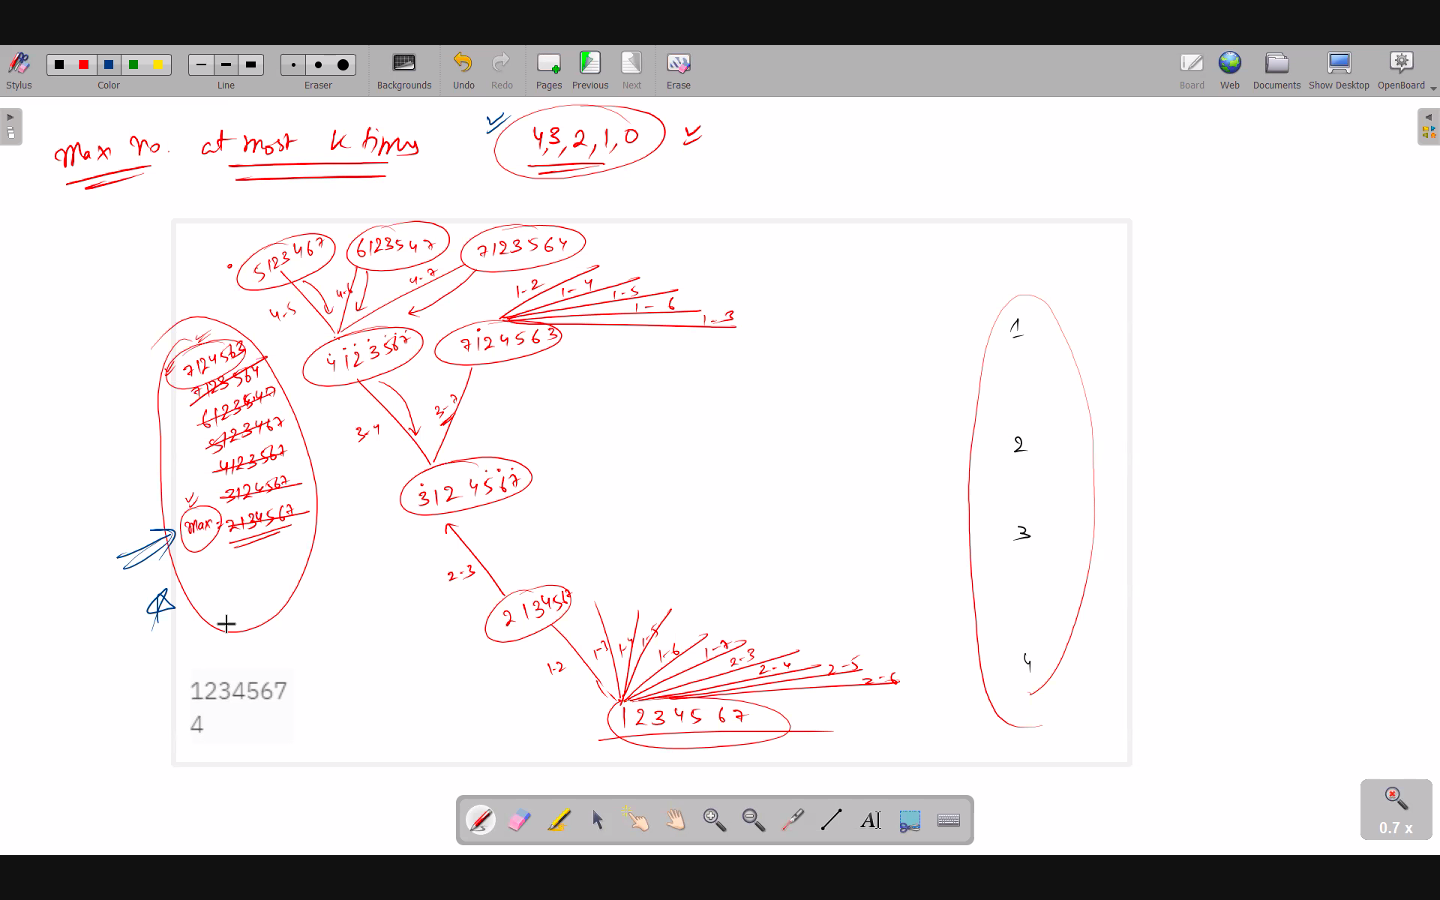 Stylus Color Line Eraser Backgrounds Undo Redo Pages Previous Next Erase Board Web Documents Show Desktop OpenBoard
Max No. at most k times 4,3,2,1,0
5123467 6123547 7123564
4-5 4-6 4-7
1-2
1-4
1-5
1-6
1-3
4123567 7124563
7124563
7123564
6123547
5123467
4123567
3124567
Max = 2134567
3-4 3-7
3124567
2-3
2134567
1-2 1-3 1-4 1-5 1-6 1-7 2-3 2-4 2-5 2-6
1234567
1234567
4
1
2
3
4
0.7 x